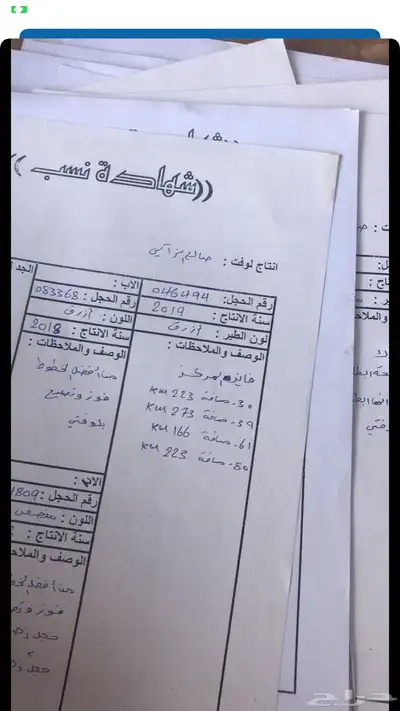 ((شهادة نسب))
انتاج لوفت :
رقم الحجل: 046494
سنة الانتاج : 2019
لون الطير : أزرق
الوصف والملاحظات :
فايز المركز
30- مسافة 223 KM
39- مسافة 273 KM
61- مسافة 166 KM
80- مسافة 223 KM
الاب :
رقم الحجل : 083368
اللون : أزرق
سنة الانتاج : 2018
الوصف والملاحظات :
من افضل الخطوط
فوز ونصيح
بلوفتي
الاب :
رقم الحجل : 1809
اللون :
سنة الانتاج :
الوصف والملاحظ
من افضل الخط
حجل
حجل
الجد ا
حراج